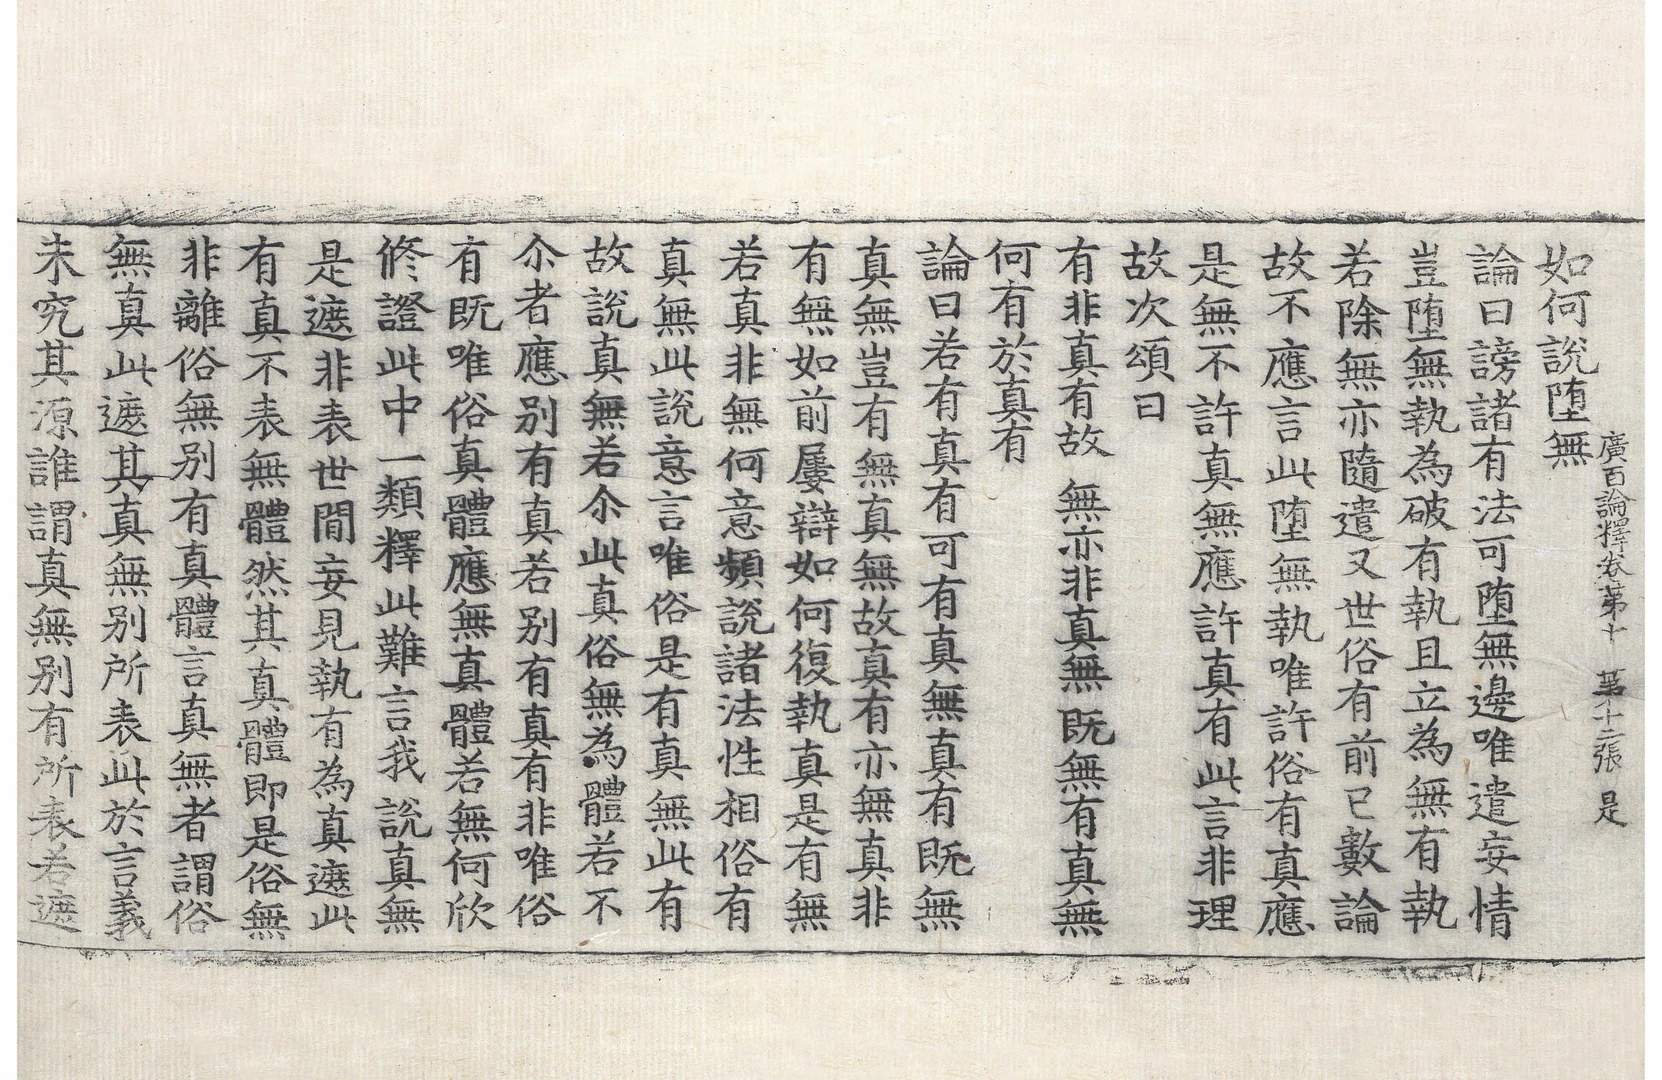 廣百論釋卷第十　第十二張　是
如何說墮無
論曰謗諸有法可墮無邊唯遣妄情
豈墮無執為破有執且立為無有執
若除無亦隨遣又世俗有前已數論
故不應言此墮無執唯許俗有真應
是無不許真無應許真有此言非理
故次頌曰
有非真有故　無亦非真無既無有真無
何有於真有
論曰若有真有可有真無真有既無
真無豈有無真無故真有亦無真非
有無如前屢辯如何復執真是有無
若真非無何意頻說諸法性相俗有
真無此說意言唯俗是有真無此有
故說真無若尒此真俗無為體若不
尒者應別有真若別有真有非唯俗
有既唯俗真體應無真體若無何欣
修證此中一類釋此難言我說真無
是遮非表世間妄見執有為真遮此
有真不表無體然其真體即是俗無
非離俗無別有真體言真無者謂俗
無真此遮其真真無別所表此於言義
未究其源誰謂真無別有所表若遮